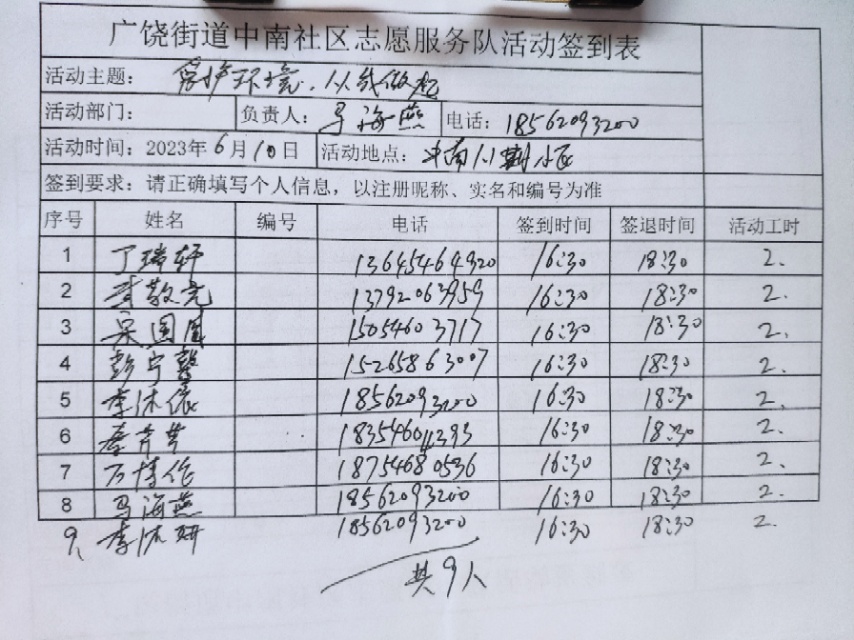 广饶街道中南社区志愿服务队活动签到表
活动主题： 爱护环境，从我做起
活动部门： 负责人： 马海燕 电话： 18562093200
活动时间：2023年6月10日 活动地点： 中南小区
签到要求：请正确填写个人信息，以注册昵称、实名和编号为准
序号 姓名 编号 电话 签到时间 签退时间 活动工时
1 丁瑞轩 13645464920 16:30 18:30 2.
2 李敬亮 13792063959 16:30 18:30 2.
3 国 15054603717 16:30 18:30 2.
4 彭宁馨 15265863007 16:30 18:30 2.
5 李沐依 18562093200 16:30 18:30 2.
6 18354601393 16:30 18:30 2.
7 万博伦 18754680536 16:30 18:30 2.
8 马海燕 18562093200 16:30 18:30 2.
9、李沐妍 18562093200 16:30 18:30 2.
共9人